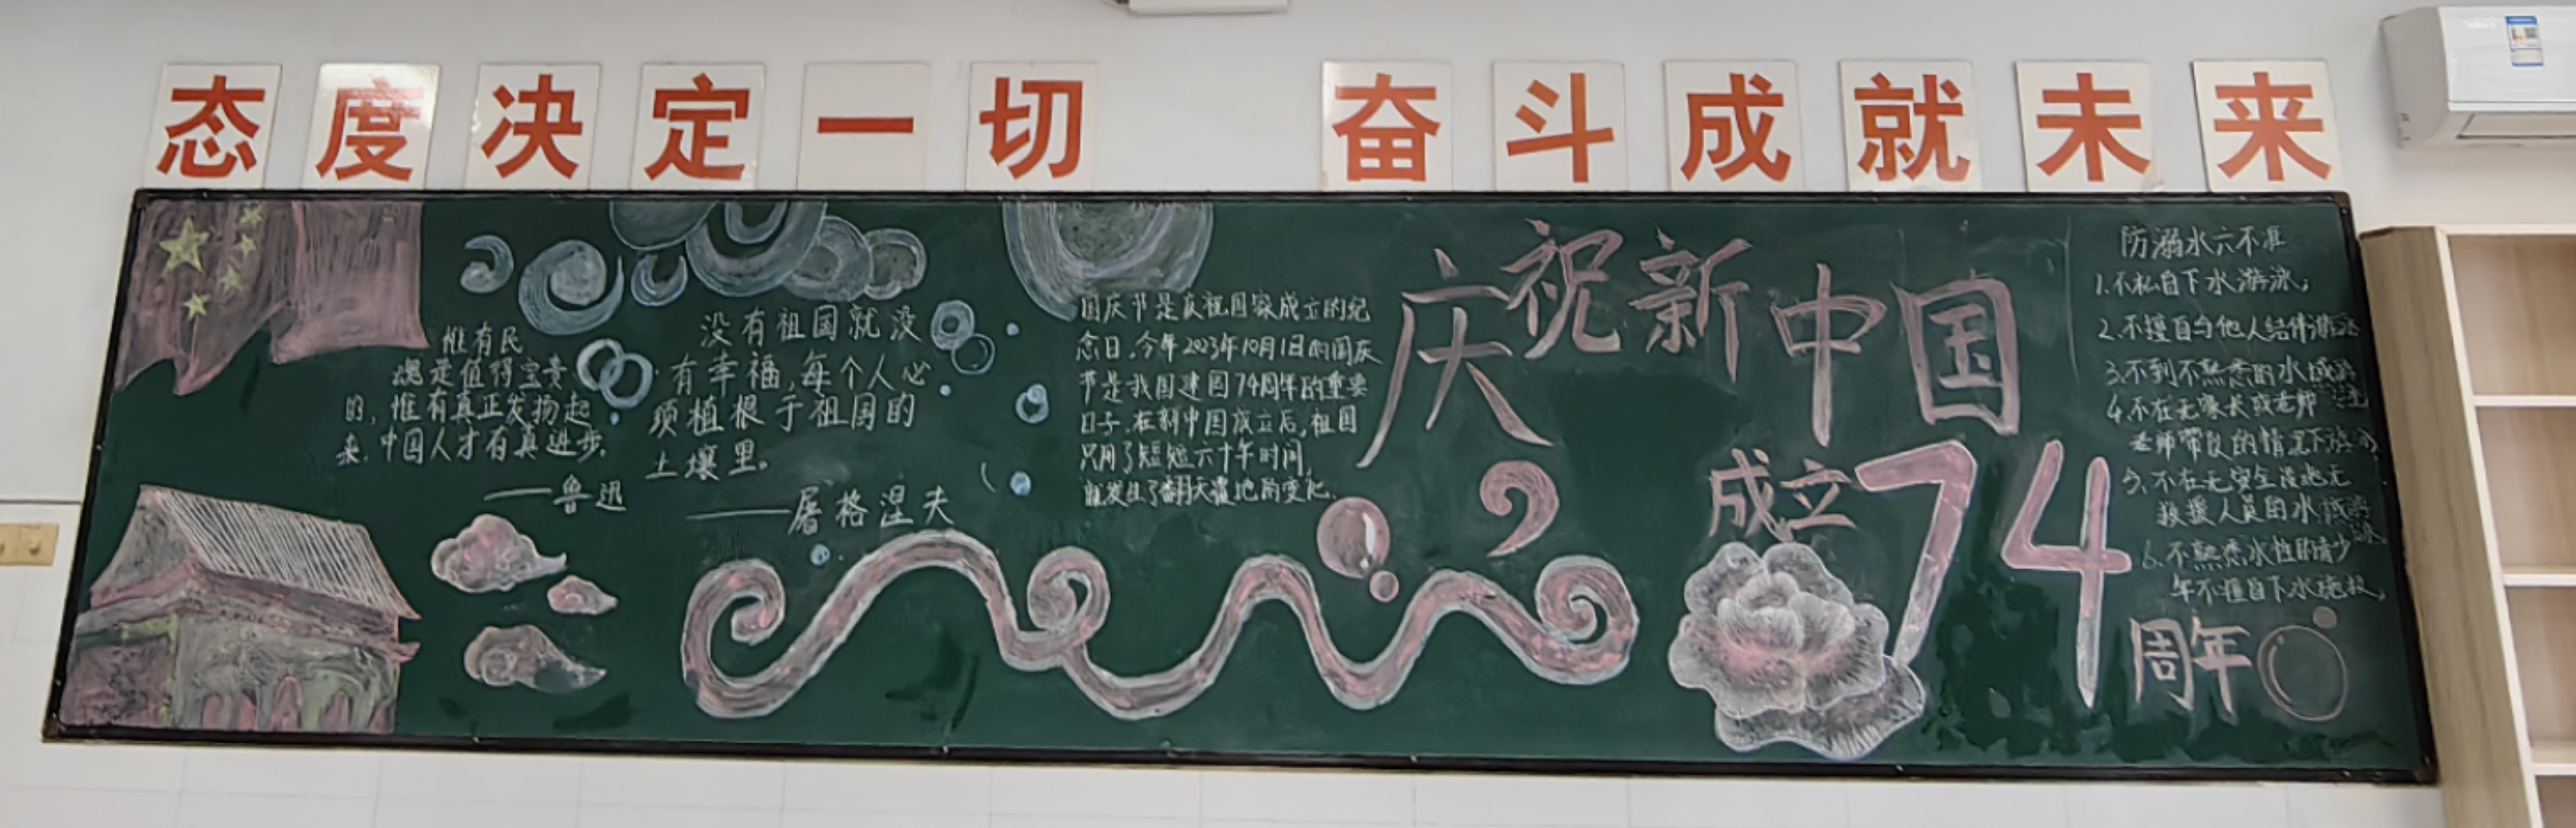 态度决定一切 奋斗成就未来
惟有民
魂是值得宝贵
的，惟有真正发扬起
来，中国人才有真进步。
——鲁迅
没有祖国就没
有幸福，每个人必
须植根于祖国的
土壤里。
——屠格涅夫
国庆节是庆祝国家成立的纪
念日，今年2023年10月1日的国庆
节是我国建国74周年的重要
日子，在新中国成立后，祖国
只用了短短六十年时间，
就发生了翻天覆地的变化。
庆祝新中国
成立74
周年
防溺水六不准
1.不私自下水游泳；
2.不擅自与他人结伴游泳
3.不到不熟悉的水域游
4.不在无家长或老师
老师带队的情况下游泳
5.不在无安全设施无
救援人员的水域游
泳
6.不熟悉水性的青少
年不擅自下水施救。